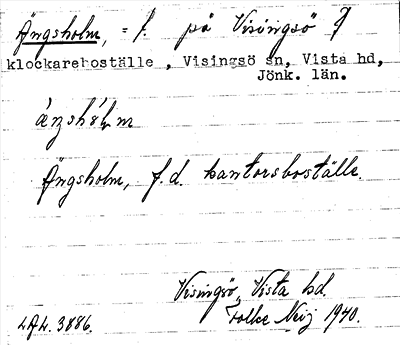 Ängsholm, = f. på Visingsö
klockareboställe , Visingsö sn, Vista hd,
Jönk. län.
Ängsholm, f.d. kantorsboställe.
Visingsö, Vista hd.
Folke 1940.